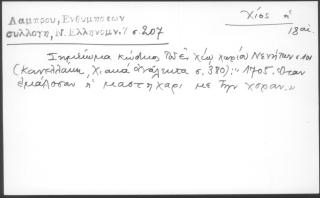 Λάμπρου, Ενθυμήσεων
συλλογή, Ν. Ελληνομν. 7 σ. 207
Χίος
18 αἰ.
Σημείωμα κώδικος τοῦ ἐν Χίῳ χωρίου Νενήτων
(Κανελλάκη, Χιακά ἀνάλεκτα σ. 380): "1705. Ὅταν
ἐμάλοσαν ἡ μαστηχαρι με την χοραν."